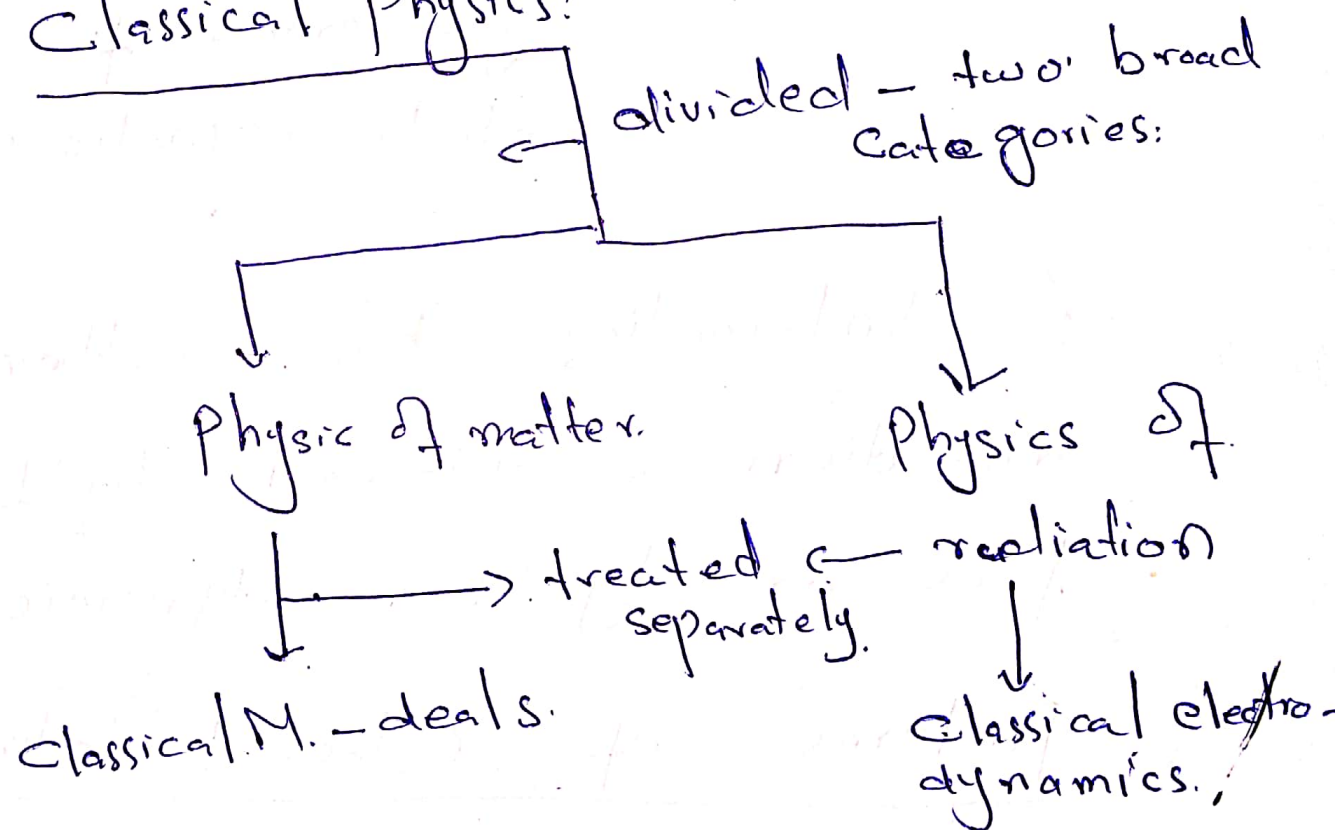 Classical Physics:
divided - two broad
Categories:
Physic of matter.
Physics of
treated ← radiation
separately.
Classical M. - deals.
Classical electro-
dynamics.